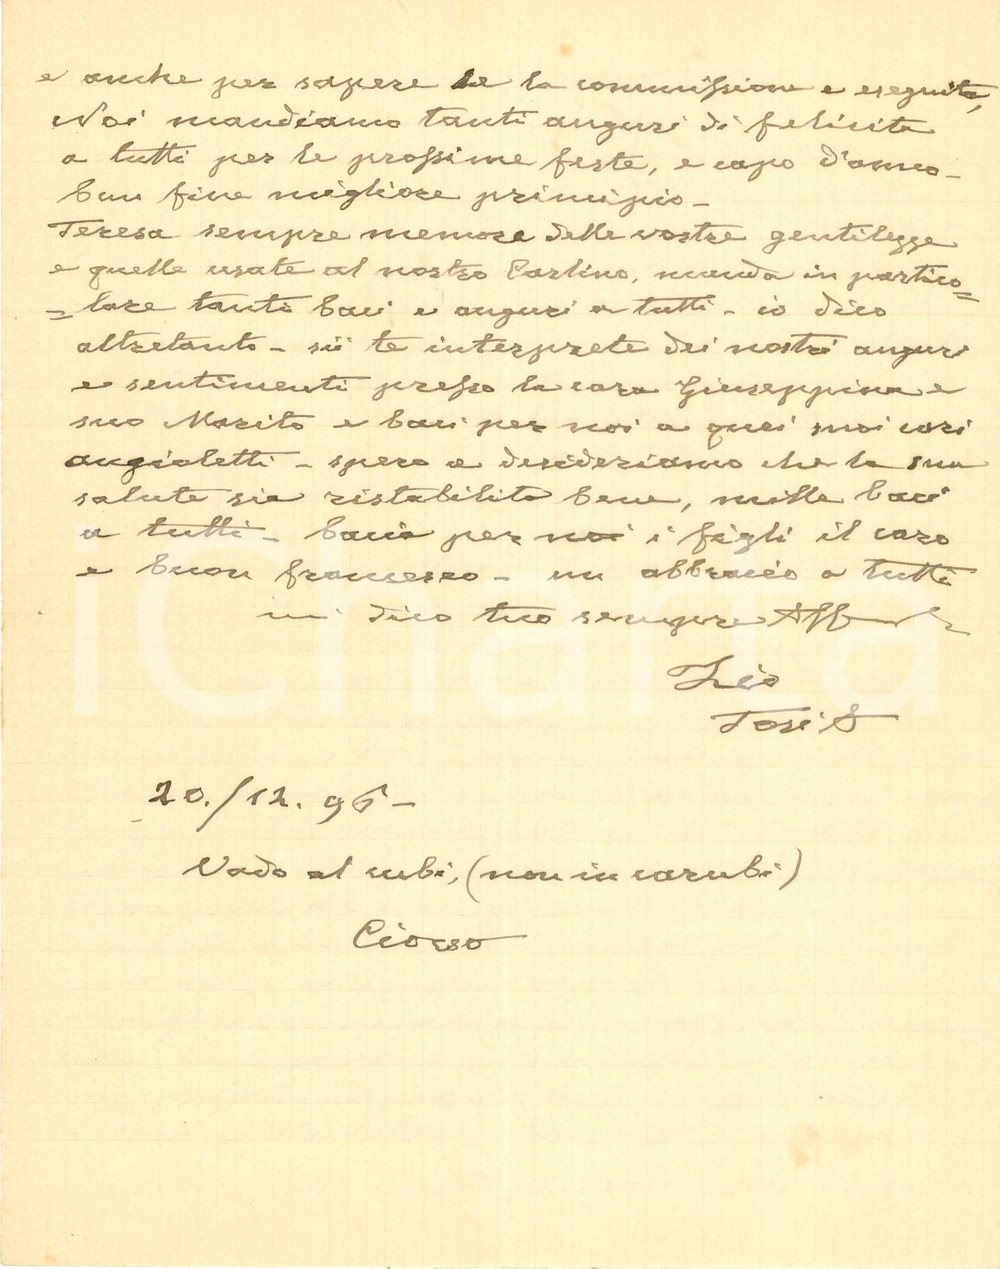 e anche per sapere se la commissione e eseguita,
Noi mandiamo tanti auguri di felicita
a tutti per le prossime feste, e capo d'anno -
bun fine migliore principio -
Teresa sempre memore delle vostre gentilezze
e quelle usate al nostro Carlino, manda in partico=
=lare tanti baci e auguri a tutti - io dico
altretanto - sii te interprete dei nostri auguri
e sentimenti presso la cara Giuseppina e
suo Marito e baci per noi a quei suoi cari
angioletti - spero e desideriamo che la sua
salute sia ristabilita bene, mille baci
a tutti - bacia per noi i figli il caro
e buon francesco - un abbraccio a tutti
mi dico tuo sempre Aff
Zio
Tosi A
20./12. 96 -
Vado al cubi, (non in carubi)
Ciosso
iCharta